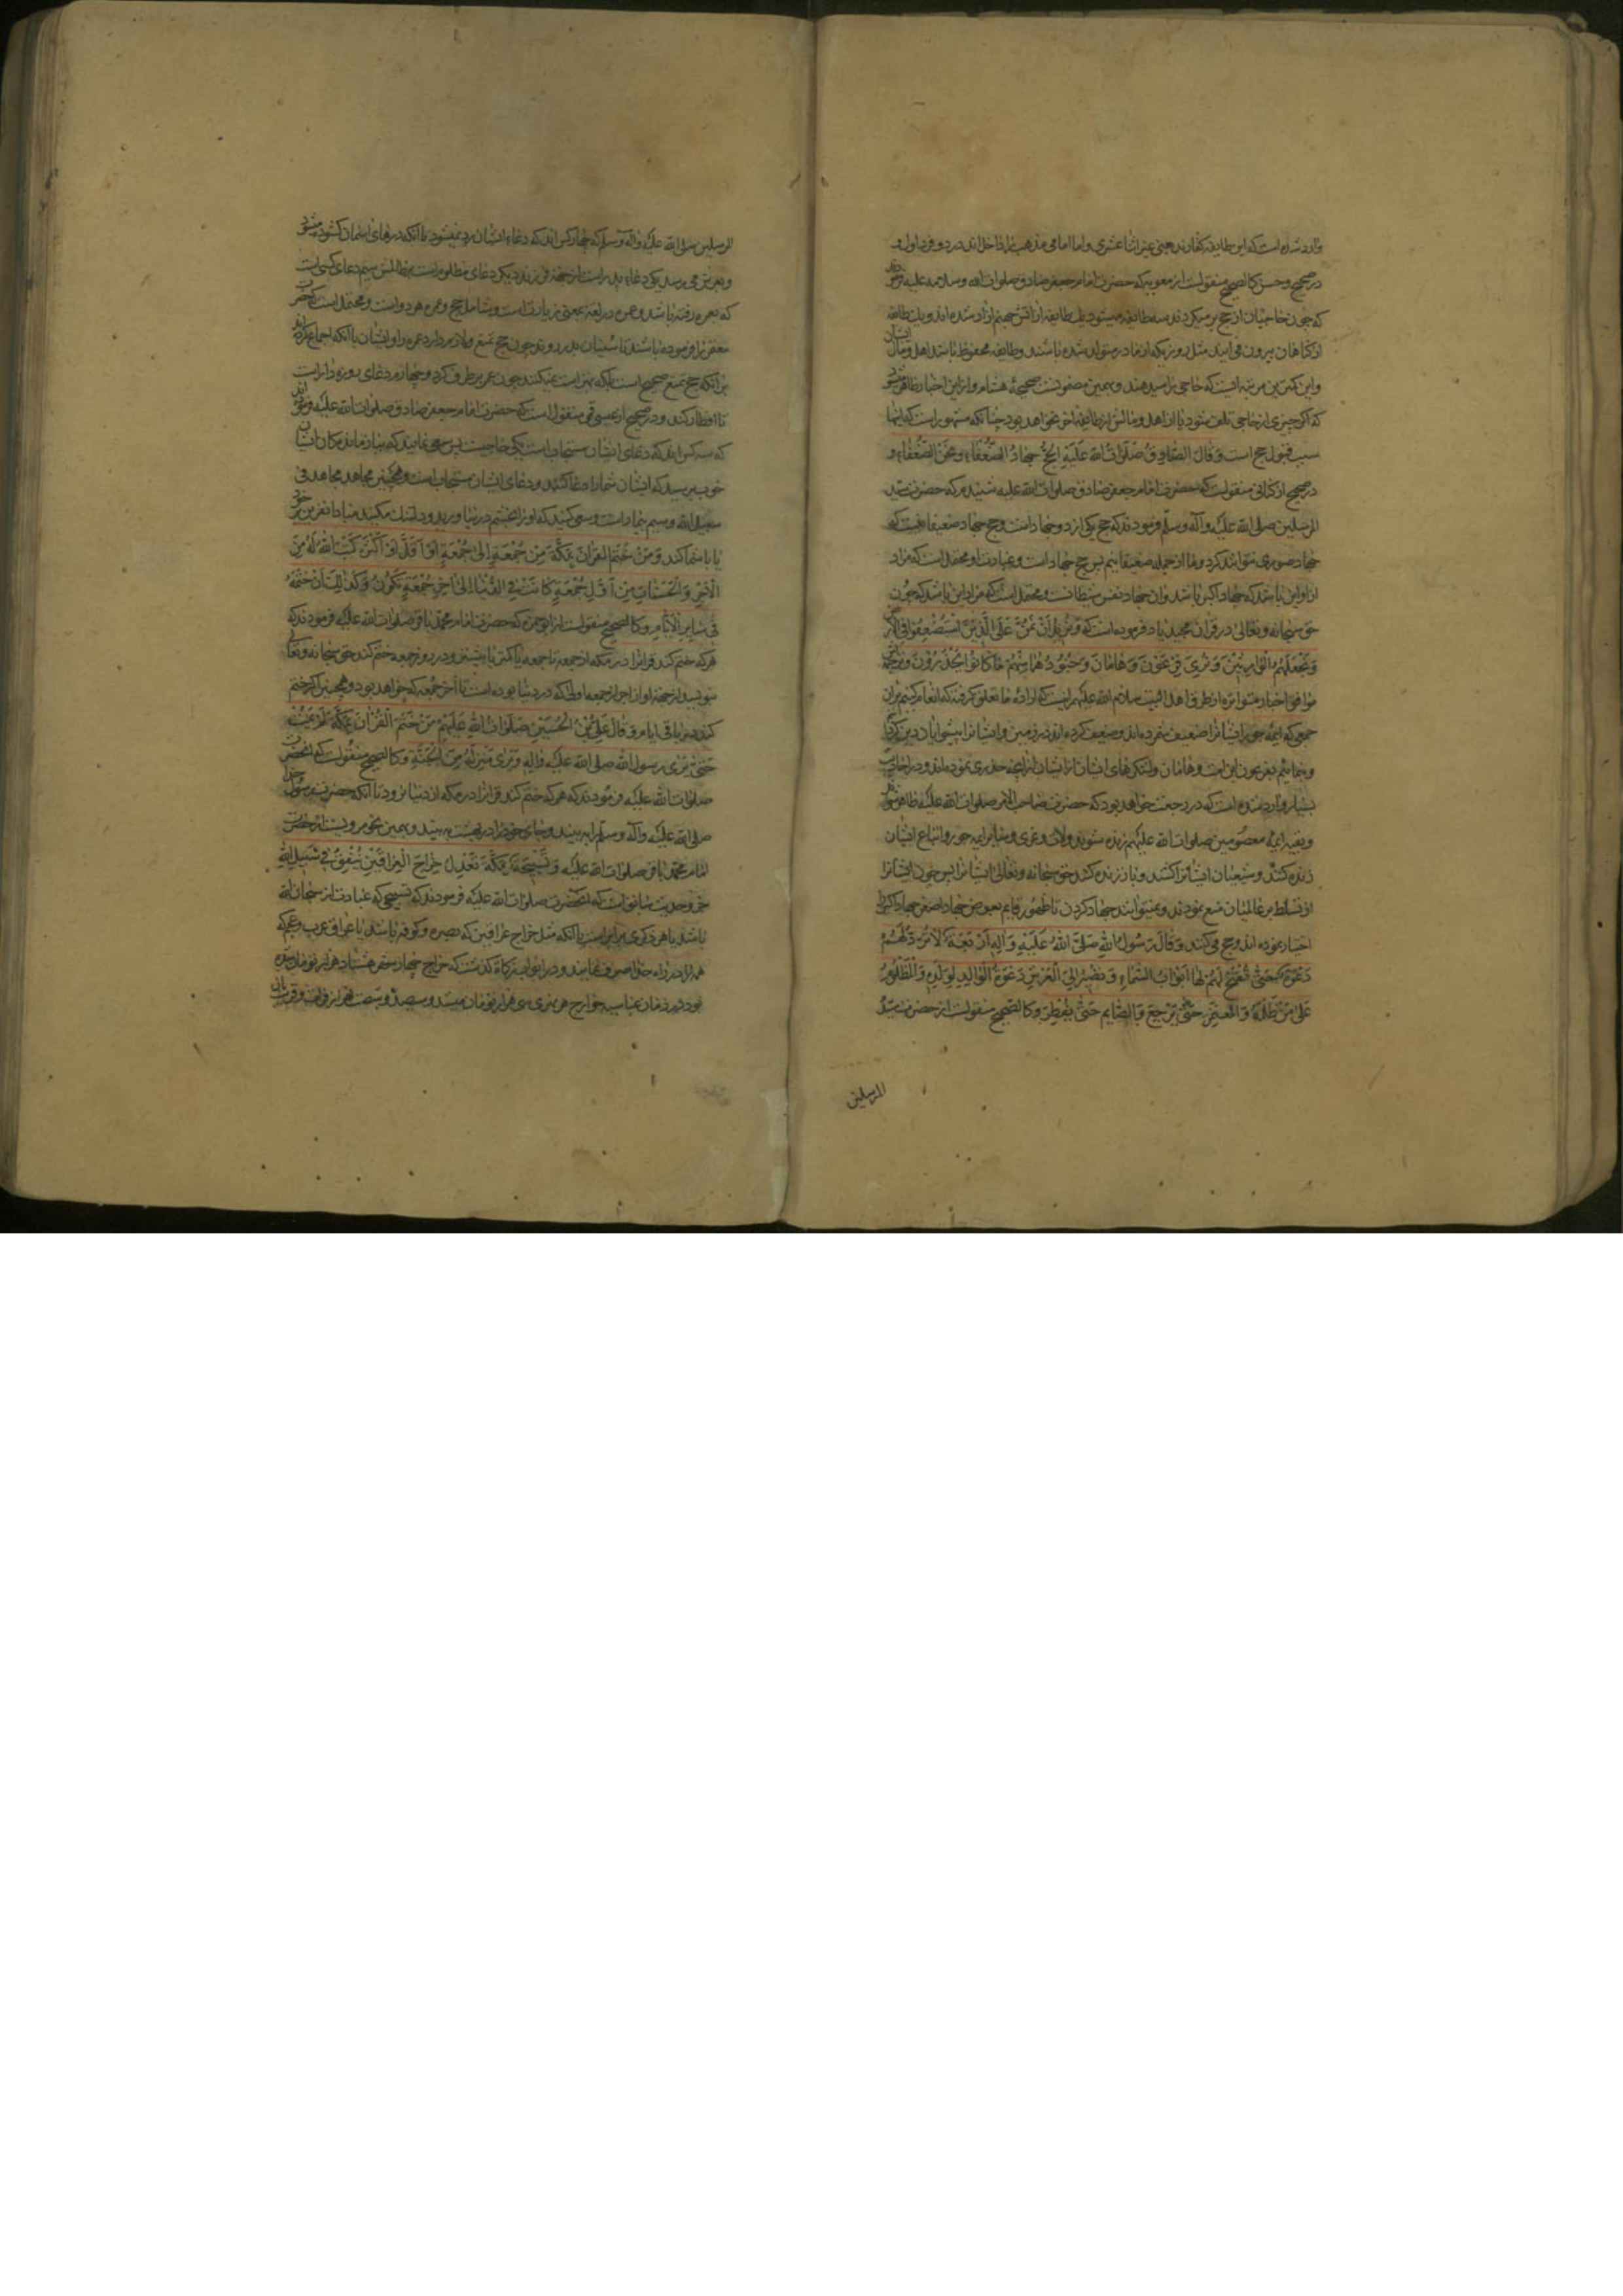 وارد شده است که این طایفه کفارند یعنی غیر اثنا عشری و اما امامی مذهب را داخل اند در دو فرد اول و
در صحیح و حسن کالصحیح منقولست از معویه که حضرت امام جعفر صادق صلوات الله و سلامه علیه فرمودند
که چون حاجیان از حج بر میکردند سه طایفه میشوند یک طایفه از اتش جهنم ازاد شده اند و یک طایفه
از کناهان بیرون می ایند مثل روزیکه از مادر متولد شده باشند و طایفه محفوظ باشد اهل و مال ایشان
و این کمترین مرتبه ایست که حاجی را میدهند و بهمین مضمونست صحیحه هشام و از این اخبار ظاهر میشود
که اکر چیزی از حاجی تلف شود یا از اهل و مالش از طایفه اخر نخواهد بود چنانکه مشهور است که اینها
سبب قبول حج است و قال الصادق صلوات الله علیه الحج جهاد الضعفاء و نحن الضعفاء و
در صحیح از کنانی منقولست که حضرت امام جعفر صادق صلوات الله علیه شنیدم که حضرت سید
المرسلین صلی الله علیه و آله و سلم فرمودند که حج یکی از دو جهاد است و حج جهاد ضعیفانست که
جهاد صوری نتوانند کرد و ما از جمله ضعیفانیم پس حج جهاد است و عبادت او محتملست که مراد
از او این باشد که جهاد اکبر باشد و ان جهاد نفس شیطانست و محتملست که مراد این باشد که چون
حق سبحانه و تعالی در قران مجید یاد فرموده است که و نرید ان نمن علی الذین استضعفوا فی الارض
و نجعلهم الوارثین و نری فرعون و هامان و جنودهما منهم ما کانوا یحذرون و ترجمه
موافق اخبار متواتره از طرق اهل البیت سلام الله علیهم اینست که اراده ما تعلق کرفته که انعام کنیم بران
جمعی که ائمه جور ایشانرا ضعیف شمرده اند و ضعیف کرده اند در زمین و ایشانرا پیشوایان دین کردانیم
و بنمائیم بفرعون این امت و هامان و لشکرهای ایشان از ایشان انرا که حذر می نموده اند و در احادیث
بسیار وارد شده است که در رجعت خواهد بود که حضرت صاحب الامر صلوات الله علیه ظاهر شود
و بقیه ایمه معصومین صلوات الله علیهم زنده شوند و لات و عزی و سایر ایمه جور و اتباع ایشان
زنده کنند و شیعیان ایشانرا کشند و باز زنده کند حق سبحانه و تعالی ایشانرا پس چون ایشانرا
از تسلط بر عالمیان منع نمودند و نمیتوانند جهاد کردن تا ظهور قایم بعوض جهاد اصغر جهاد اکبر را
اختیار نموده اند و حج می کنند و قال رسول الله صلی الله علیه و اله اربعة لا ترد لهم
دعوة حتی تفتح لهم لها ابواب السماء و تصیر الی العرش دعوة الوالد لولده و المظلوم
علی من ظلمه و المعتمر حتی یرجع و الصایم حتی یفطر و کالصحیح منقولست از حضرت سید
المرسلین
المرسلین صلی الله علیه و اله و سلم که چهار کس اند که دعاء ایشان رد نمیشود تا انکه درهای اسمان کشوده میشود
و بعرش می رسد یکی دعاء پدر است از جهة فرزند دیکر دعای مظلوم است بر ظالمش سیم دعای کسی است
که بعمره رفته باشد و عمره در لغة بمعنی زیارتست و شامل حج و عمره هر دو است و محتملست که حضرت
معتمر را فرموده باشند تا سنیان بدر روند چون حج تمتع و لازم دارد عمره را و ایشان با انکه اجماع کرده اند
بر انکه حج تمتع صحیح است بلکه بهتر است نمیکنند چون عمر بر طرف کرد و چهارم دعای روزه دار است
تا افطار کند و در صحیح از عیسی قمی منقولست که حضرت امام جعفر صادق صلوات الله علیه فرموده اند
که سه کس اند که دعای ایشان مستجاب است یکی حاجیست پس سعی نمایند که بنیاز ماند مکان ایشان
خوب برسید که ایشان شما را دعا کنند و دعای ایشان مستجاب است و همچنین مجاهد مجاهد فی
سبیل الله و سیم بیمار است و سعی کنید که او را بخشم در نیاورید و دلتنک مکنید مبادا نفرین بر خود
یا با شما کند و من ختم القران بمکة من جمعة الی جمعة او اقل او اکثر کتب الله له من
الاجر و الحسنات من اول جمعة کانت فی الدنیا الی اخر جمعة تکون و کذلک ان ختمه
فی سایر الایام و کالصحیح منقولست از ابو حمزه که حضرت امام محمد باقر صلوات الله علیه فرمودند که
هر که ختم کند قرانرا در مکه از جمعه تا جمعه یا کمتر یا بیشتر و در روز جمعه ختم کند حق سبحانه و تعالی
بنویسد از جهة او از اجر از جمعه اولی که در دنیا بوده است تا اخر جمعه که خواهد بود و همچنین اکر ختم
کند در باقی ایام و قال علی بن الحسین صلوات الله علیهم من ختم القران بمکة لم یمت
حتی یری رسول الله صلی الله علیه و اله و یری منزله من الجنة و کالصحیح منقولست که انحضرت
صلوات الله علیه فرمودند که هر که ختم کند قرانرا در مکه از دنیا نرود تا انکه حضرت رسول خدا
صلی الله علیه و آله و سلم را ببیند و جای خود را در بهشت ببیند و بهمین نحو مرویست از حضرت
امام محمد باقر صلوات الله علیه و تسبیحة بمکة تعدل خراج العراقین ینفق فی سبیل الله
جزو حدیث سابقست که انحضرت صلوات الله علیه فرمودند که تسبیحی که عبادت از سبحان الله
باشد یا هر ذکری برابر است با انکه مثل خراج عراقین که بصره و کوفه باشد یا عراق عرب و عجم که
همه را در راه حق صرف نمایند و در ابواب زکاة کذشت که خراج